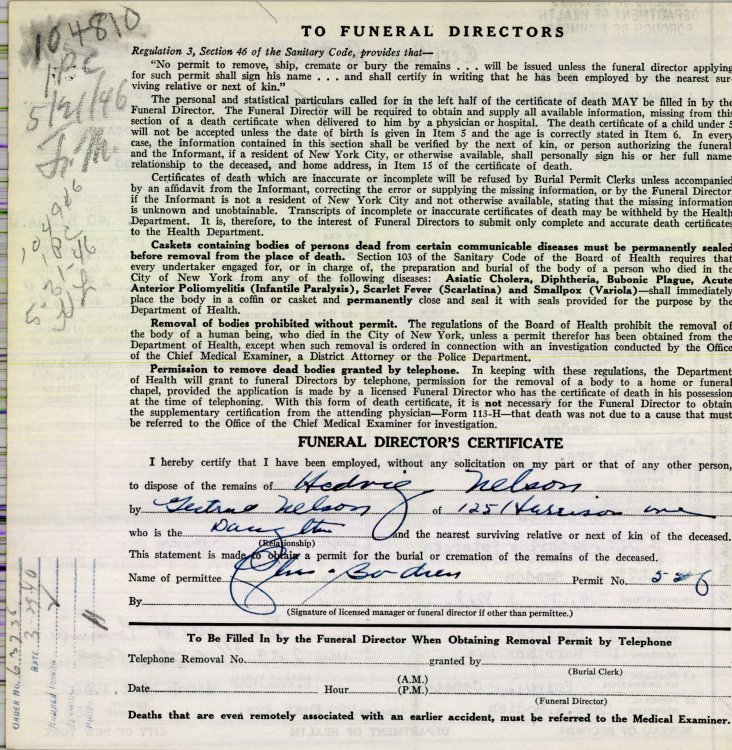 TO FUNERAL DIRECTORS
Regulation 3, Section 46 of the Sanitary Code, provides that—
"No permit to remove, ship, cremate or bury the remains . . . will be issued unless the funeral director applying
for such permit shall sign his name . . . and shall certify in writing that he has been employed by the nearest sur-
viving relative or next of kin."
The personal and statistical particulars called for in the left half of the certificate of death MAY be filled in by the
Funeral Director. The Funeral Director will be required to obtain and supply all available information, missing from this
section of a death certificate when delivered to him by a physician or hospital. The death certificate of a child under 5
will not be accepted unless the date of birth is given in Item 5 and the age is correctly stated in Item 6. In every
case, the information contained in this section shall be verified by the next of kin, or person authorizing the funeral
and the Informant, if a resident of New York City, or otherwise available, shall personally sign his or her full name
relationship to the deceased, and home address, in Item 15 of the certificate of death.
Certificates of death which are inaccurate or incomplete will be refused by Burial Permit Clerks unless accompanied
by an affidavit from the Informant, correcting the error or supplying the missing information, or by the Funeral Director
if the Informant is not a resident of New York City and not otherwise available, stating that the missing information
is unknown and unobtainable. Transcripts of incomplete or inaccurate certificates of death may be withheld by the Health
Department. It is, therefore, to the interest of Funeral Directors to submit only complete and accurate death certificates
to the Health Department.
Caskets containing bodies of persons dead from certain communicable diseases must be permanently sealed
before removal from the place of death. Section 103 of the Sanitary Code of the Board of Health requires that
every undertaker engaged for, or in charge of, the preparation and burial of the body of a person who died in the
City of New York from any of the following diseases: Asiatic Cholera, Diphtheria, Bubonic Plague, Acute
Anterior Poliomyelitis (Infantile Paralysis), Scarlet Fever (Scarlatina) and Smallpox (Variola)—shall immediately
place the body in a coffin or casket and permanently close and seal it with seals provided for the purpose by the
Department of Health.
Removal of bodies prohibited without permit. The regulations of the Board of Health prohibit the removal of
the body of a human being, who died in the City of New York, unless a permit therefor has been obtained from the
Department of Health, except when such removal is ordered in connection with an investigation conducted by the Office
of the Chief Medical Examiner, a District Attorney or the Police Department.
Permission to remove dead bodies granted by telephone. In keeping with these regulations, the Department
of Health will grant to funeral Directors by telephone, permission for the removal of a body to a home or funeral
chapel, provided the application is made by a licensed Funeral Director who has the certificate of death in his possession
at the time of telephoning. With this form of death certificate, it is not necessary for the Funeral Director to obtain
the supplementary certification from the attending physician—Form 113-H—that death was not due to a cause that must
be referred to the Office of the Chief Medical Examiner for investigation.
FUNERAL DIRECTOR'S CERTIFICATE
I hereby certify that I have been employed, without any solicitation on my part or that of any other person,
to dispose of the remains of Hedvig Nelson
by Gertrud Nelson of 125 Harrison ave
who is the Daughter and the nearest surviving relative or next of kin of the deceased.
(Relationship)
This statement is made to obtain a permit for the burial or cremation of the remains of the deceased.
Name of permittee Permit No.
By
(Signature of licensed manager or funeral director if other than permittee.)
To Be Filled In by the Funeral Director When Obtaining Removal Permit by Telephone
Telephone Removal No. granted by
(Burial Clerk)
Date Hour (A.M.)
(P.M.)
(Funeral Director)
Deaths that are even remotely associated with an earlier accident, must be referred to the Medical Examiner.
104810
5/21/46
ORDER No.
DATE